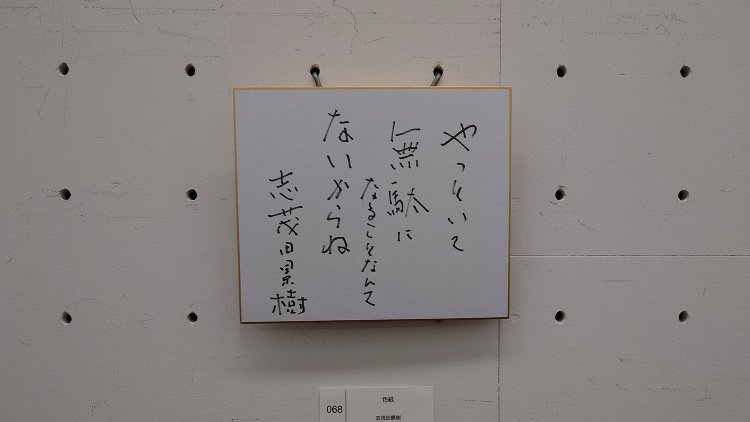 やっていて
無駄に
なることなんて
ないからね
志茂田景樹
068
色紙
志茂田景樹